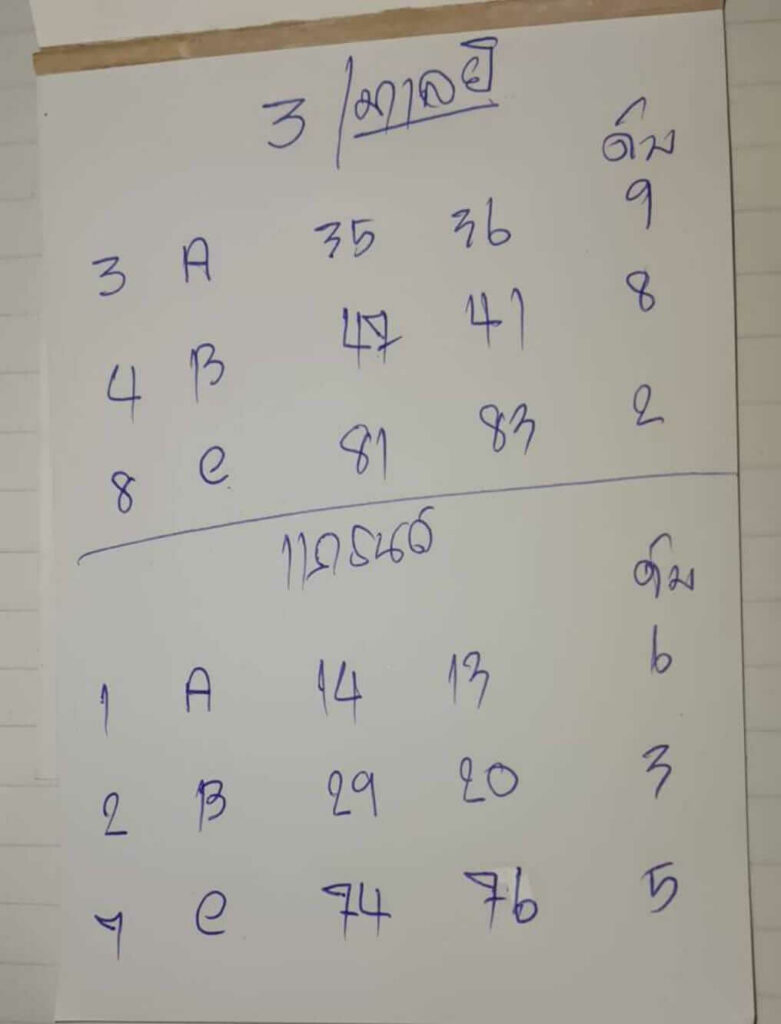 3 / มาลยี
ดับ
3 A 35 36 9
4 B 47 41 8
8 C 81 83 2
ดับ
1 A 14 13 6
2 B 29 20 3
7 C 74 76 5